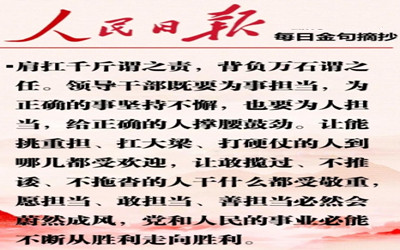 人民日报
每日金句摘抄
▪肩扛千斤谓之责，背负万石谓之
任。领导干部既要为事担当，为
正确的事坚持不懈，也要为人担
当，给正确的人撑腰鼓劲。让能
挑重担、扛大梁、打硬仗的人到
哪儿都受欢迎，让敢揽过、不推
诿、不拖沓的人干什么都受敬重，
愿担当、敢担当、善担当必然会
蔚然成风，党和人民的事业必能
不断从胜利走向胜利。